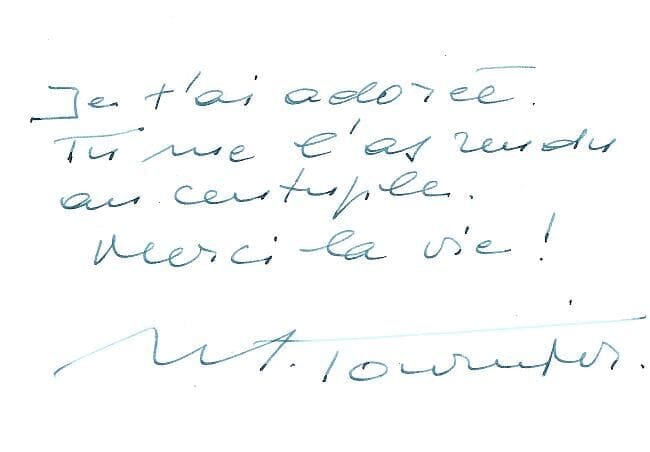 Je t'ai adorée.
Tu me l'as rendu
au centuple.
Merci la vie !
M. Tournier.